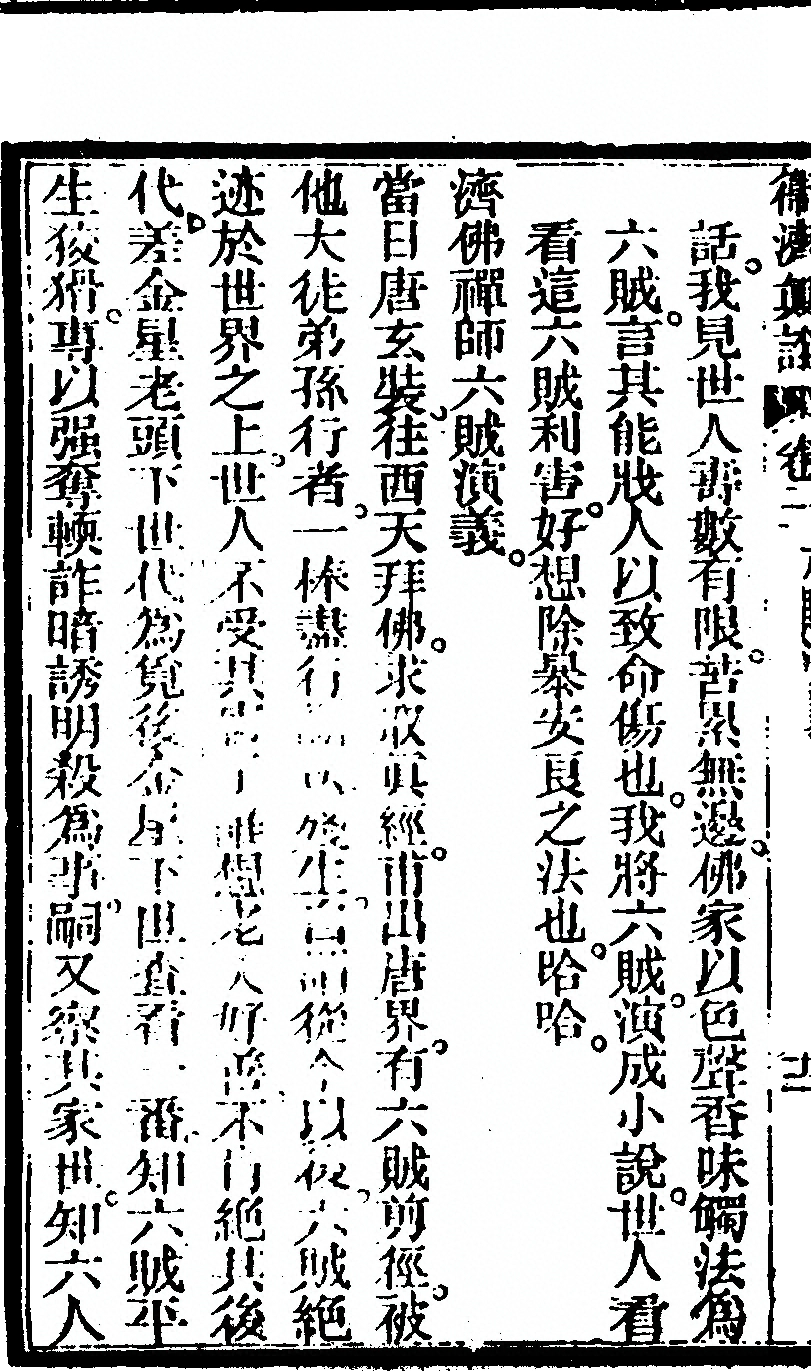 話我見世人壽數有限苦景無邊佛家以色聲香味觸法為
六賊言其能戕人以致命傷也我將六賊演成小說世人看
看這六賊利害好想除暴安良之法也哈哈
濟佛禪師六賊演義
當日唐玄裝往西天拜佛求取真經甫出唐界有六賊剪徑被
他大徒弟孫行者一棒盡行生從今以後六賊絕
迹於世界之上世人不受其害了誰想老天好善不肯絕其後
代差金星老頭下世代為覓後金星下世查看一番知六賊平
生狡猾專以强奪輭詐暗誘明殺為事嗣又察其家世知六人